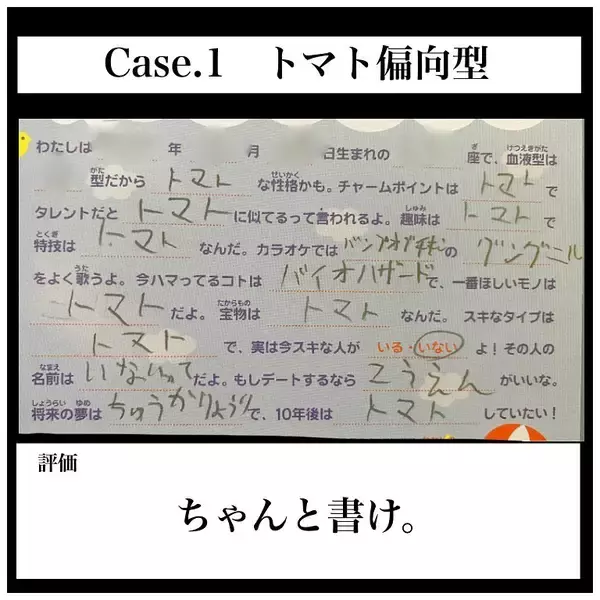 Case.1　トマト偏向型
わたしは　年　月　日生まれの　座で、血液型は
型だから トマト な性格かも。チャームポイントは トマト で
タレントだと トマト に似てるって言われるよ。趣味は トマト で
特技は トマト なんだ。カラオケでは バンプオブチキン の グングニル
をよく歌うよ。今ハマってるコトは バイオハザード で、一番ほしいモノは
トマト だよ。宝物は トマト なんだ。スキなタイプは
トマト で、実は今スキな人が いる・いない よ！その人の
名前は いないって だよ。もしデートするなら こうえん がいいな。
将来の夢は ちゅうかりょうり で、10年後は トマト していたい！
評価
ちゃんと書け。